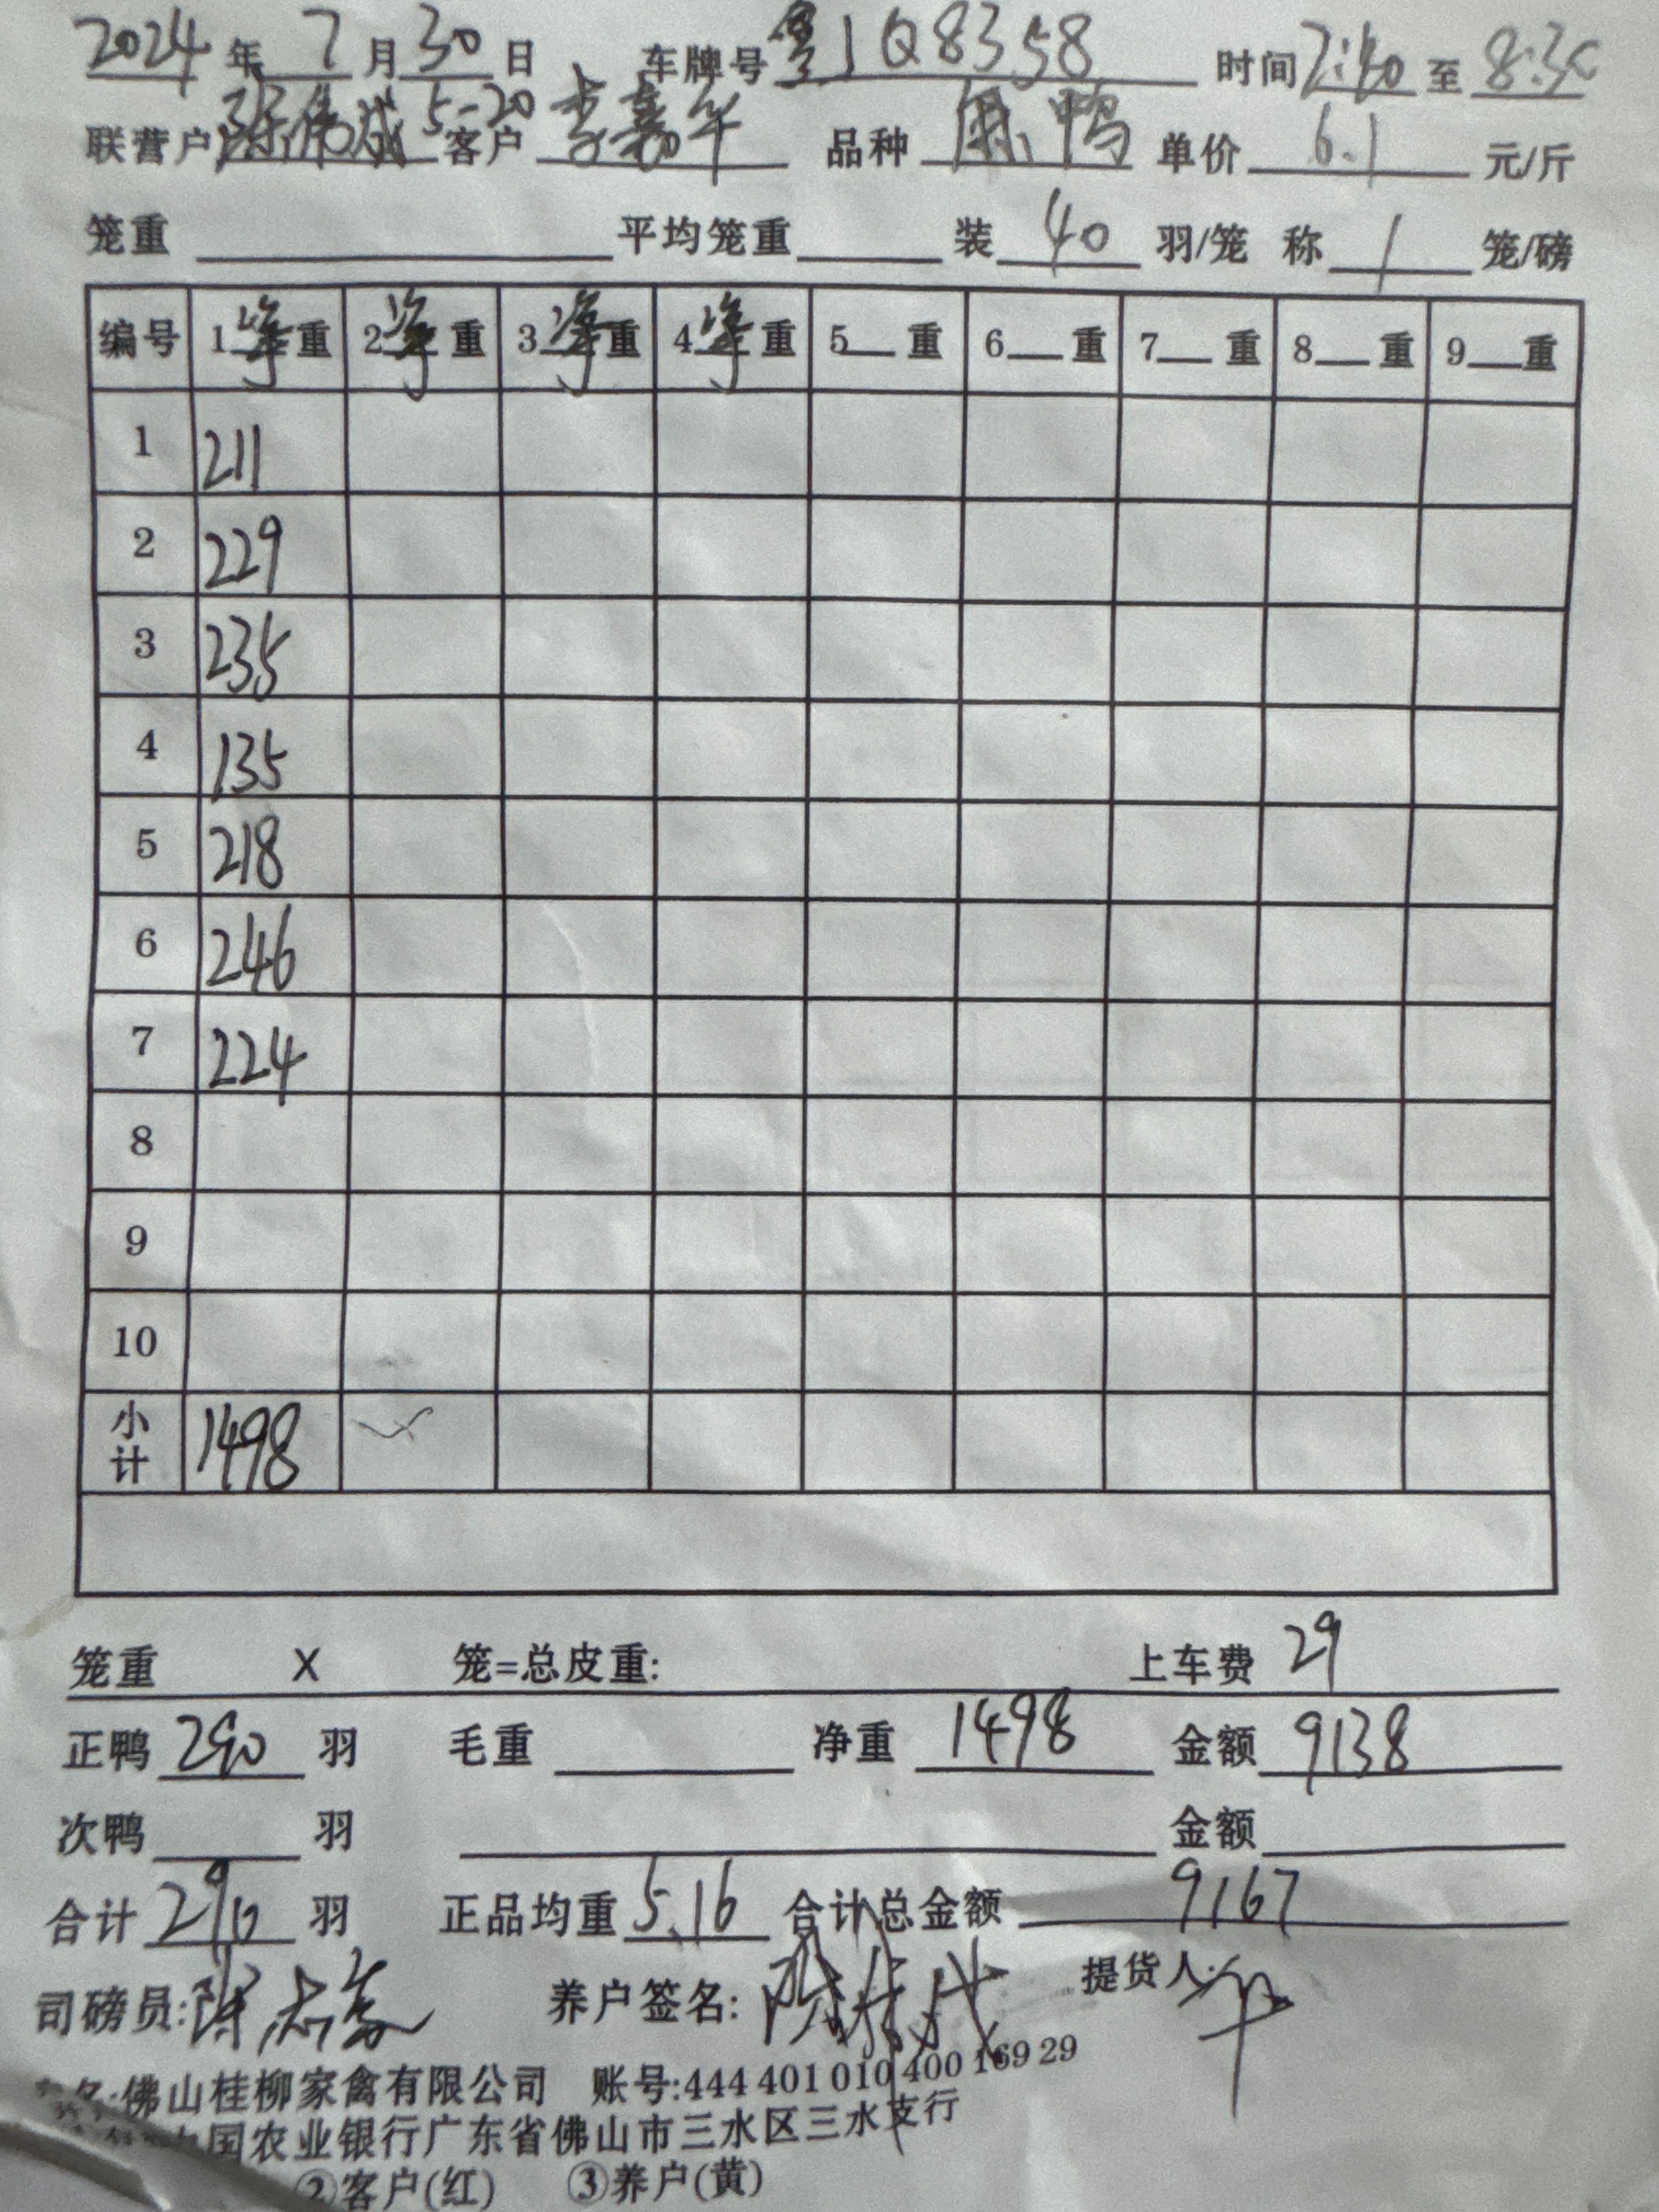 2024 年 7 月 30 日 车牌号 粤JQ8358 时间 7:40 至 8:30
联营户 5-20 客户 李嘉华 品种 鸭 单价 6.1 元/斤
笼重 平均笼重 装 40 羽/笼 称 1 笼/磅
编号 1净重 2净重 3净重 4净重 5重 6重 7重 8重 9重
1 211
2 229
3 235
4 135
5 218
6 246
7 224
8
9
10
小计 1498
笼重 X 笼=总皮重: 上车费 29
正鸭 290 羽 毛重 净重 1498 金额 9138
次鸭 羽 金额
合计 290 羽 正品均重 5.16 合计总金额 9167
司磅员: 养户签名: 提货人:
名:佛山桂柳家禽有限公司 账号:444 401 010 400 169 29
国农业银行广东省佛山市三水区三水支行
②客户(红) ③养户(黄)